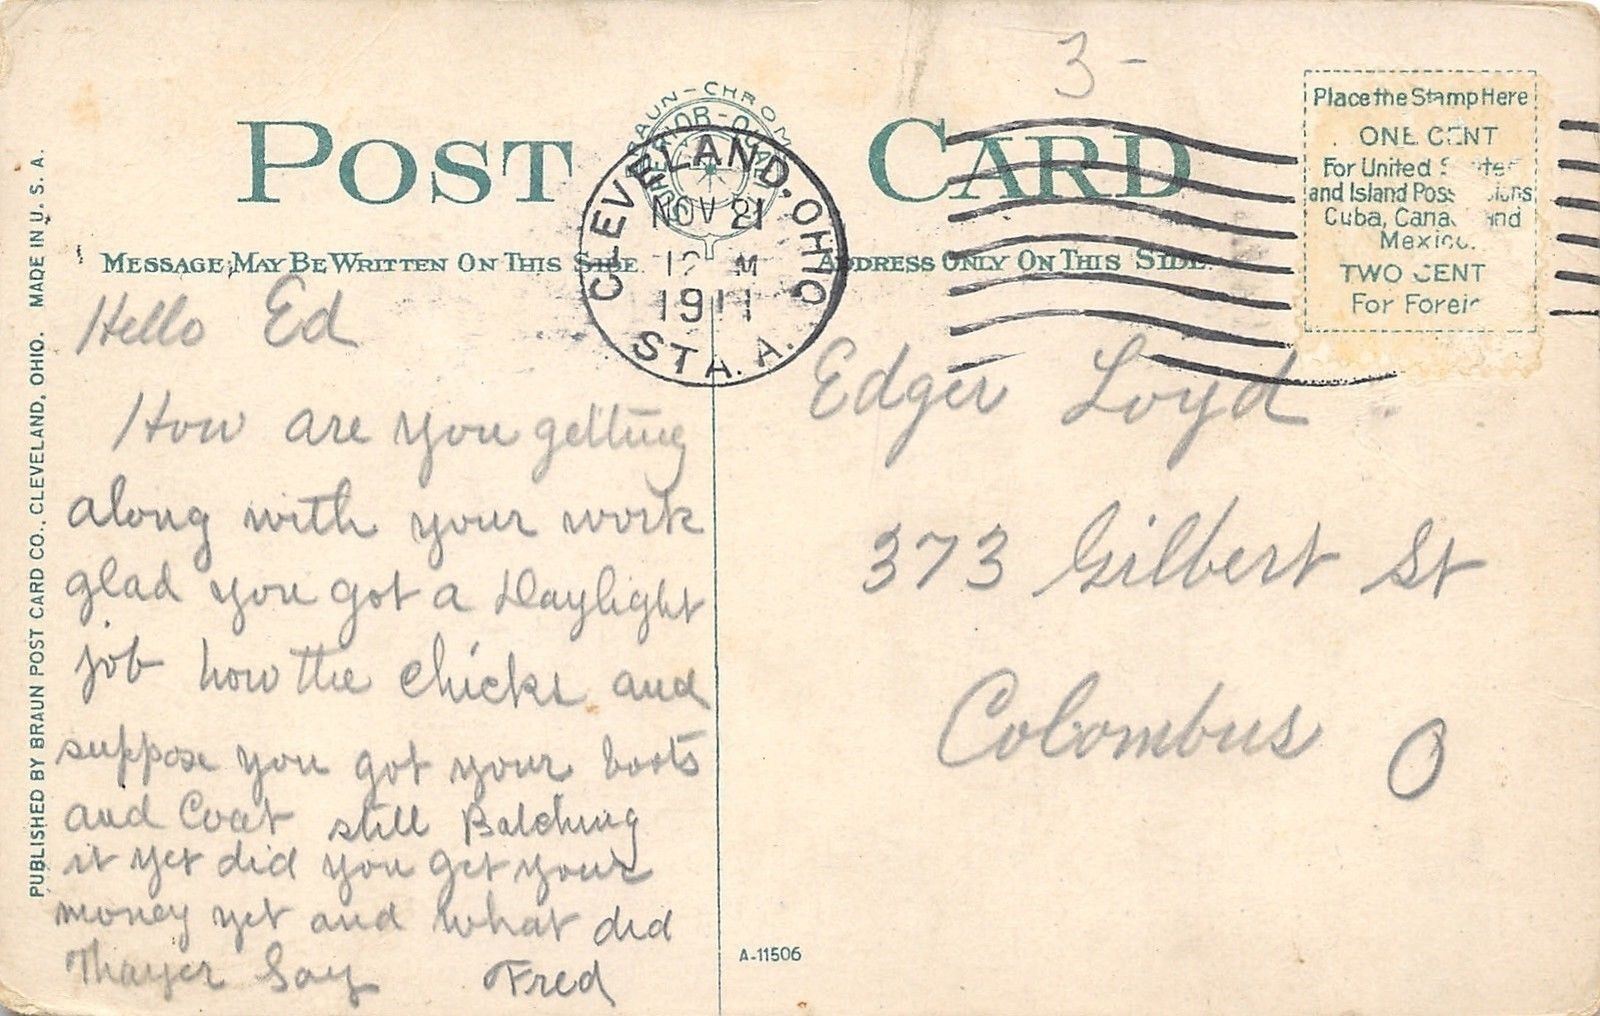 3-
POST CARD
CLEVELAND, OHIO
NOV 21
12 M
1911
STA. A.
Place the Stamp Here
ONE CENT
For United
and Island
Cuba, and
Mexico.
TWO CENT
For
MESSAGE MAY BE WRITTEN ON THIS SIDE
ADDRESS ONLY ON THIS SIDE
PUBLISHED BY BRAUN POST CARD CO., CLEVELAND, OHIO. MADE IN U. S. A.
Hello Ed
How are you getting
along with your work
glad you got a Daylight
job how the chicks and
suppose you got your boots
and Coat still Balching
it yet did you get your
money yet and what did
Thayer Say Fred
Edger Loyd
373 Gilbert St
Colombus O
A-11506